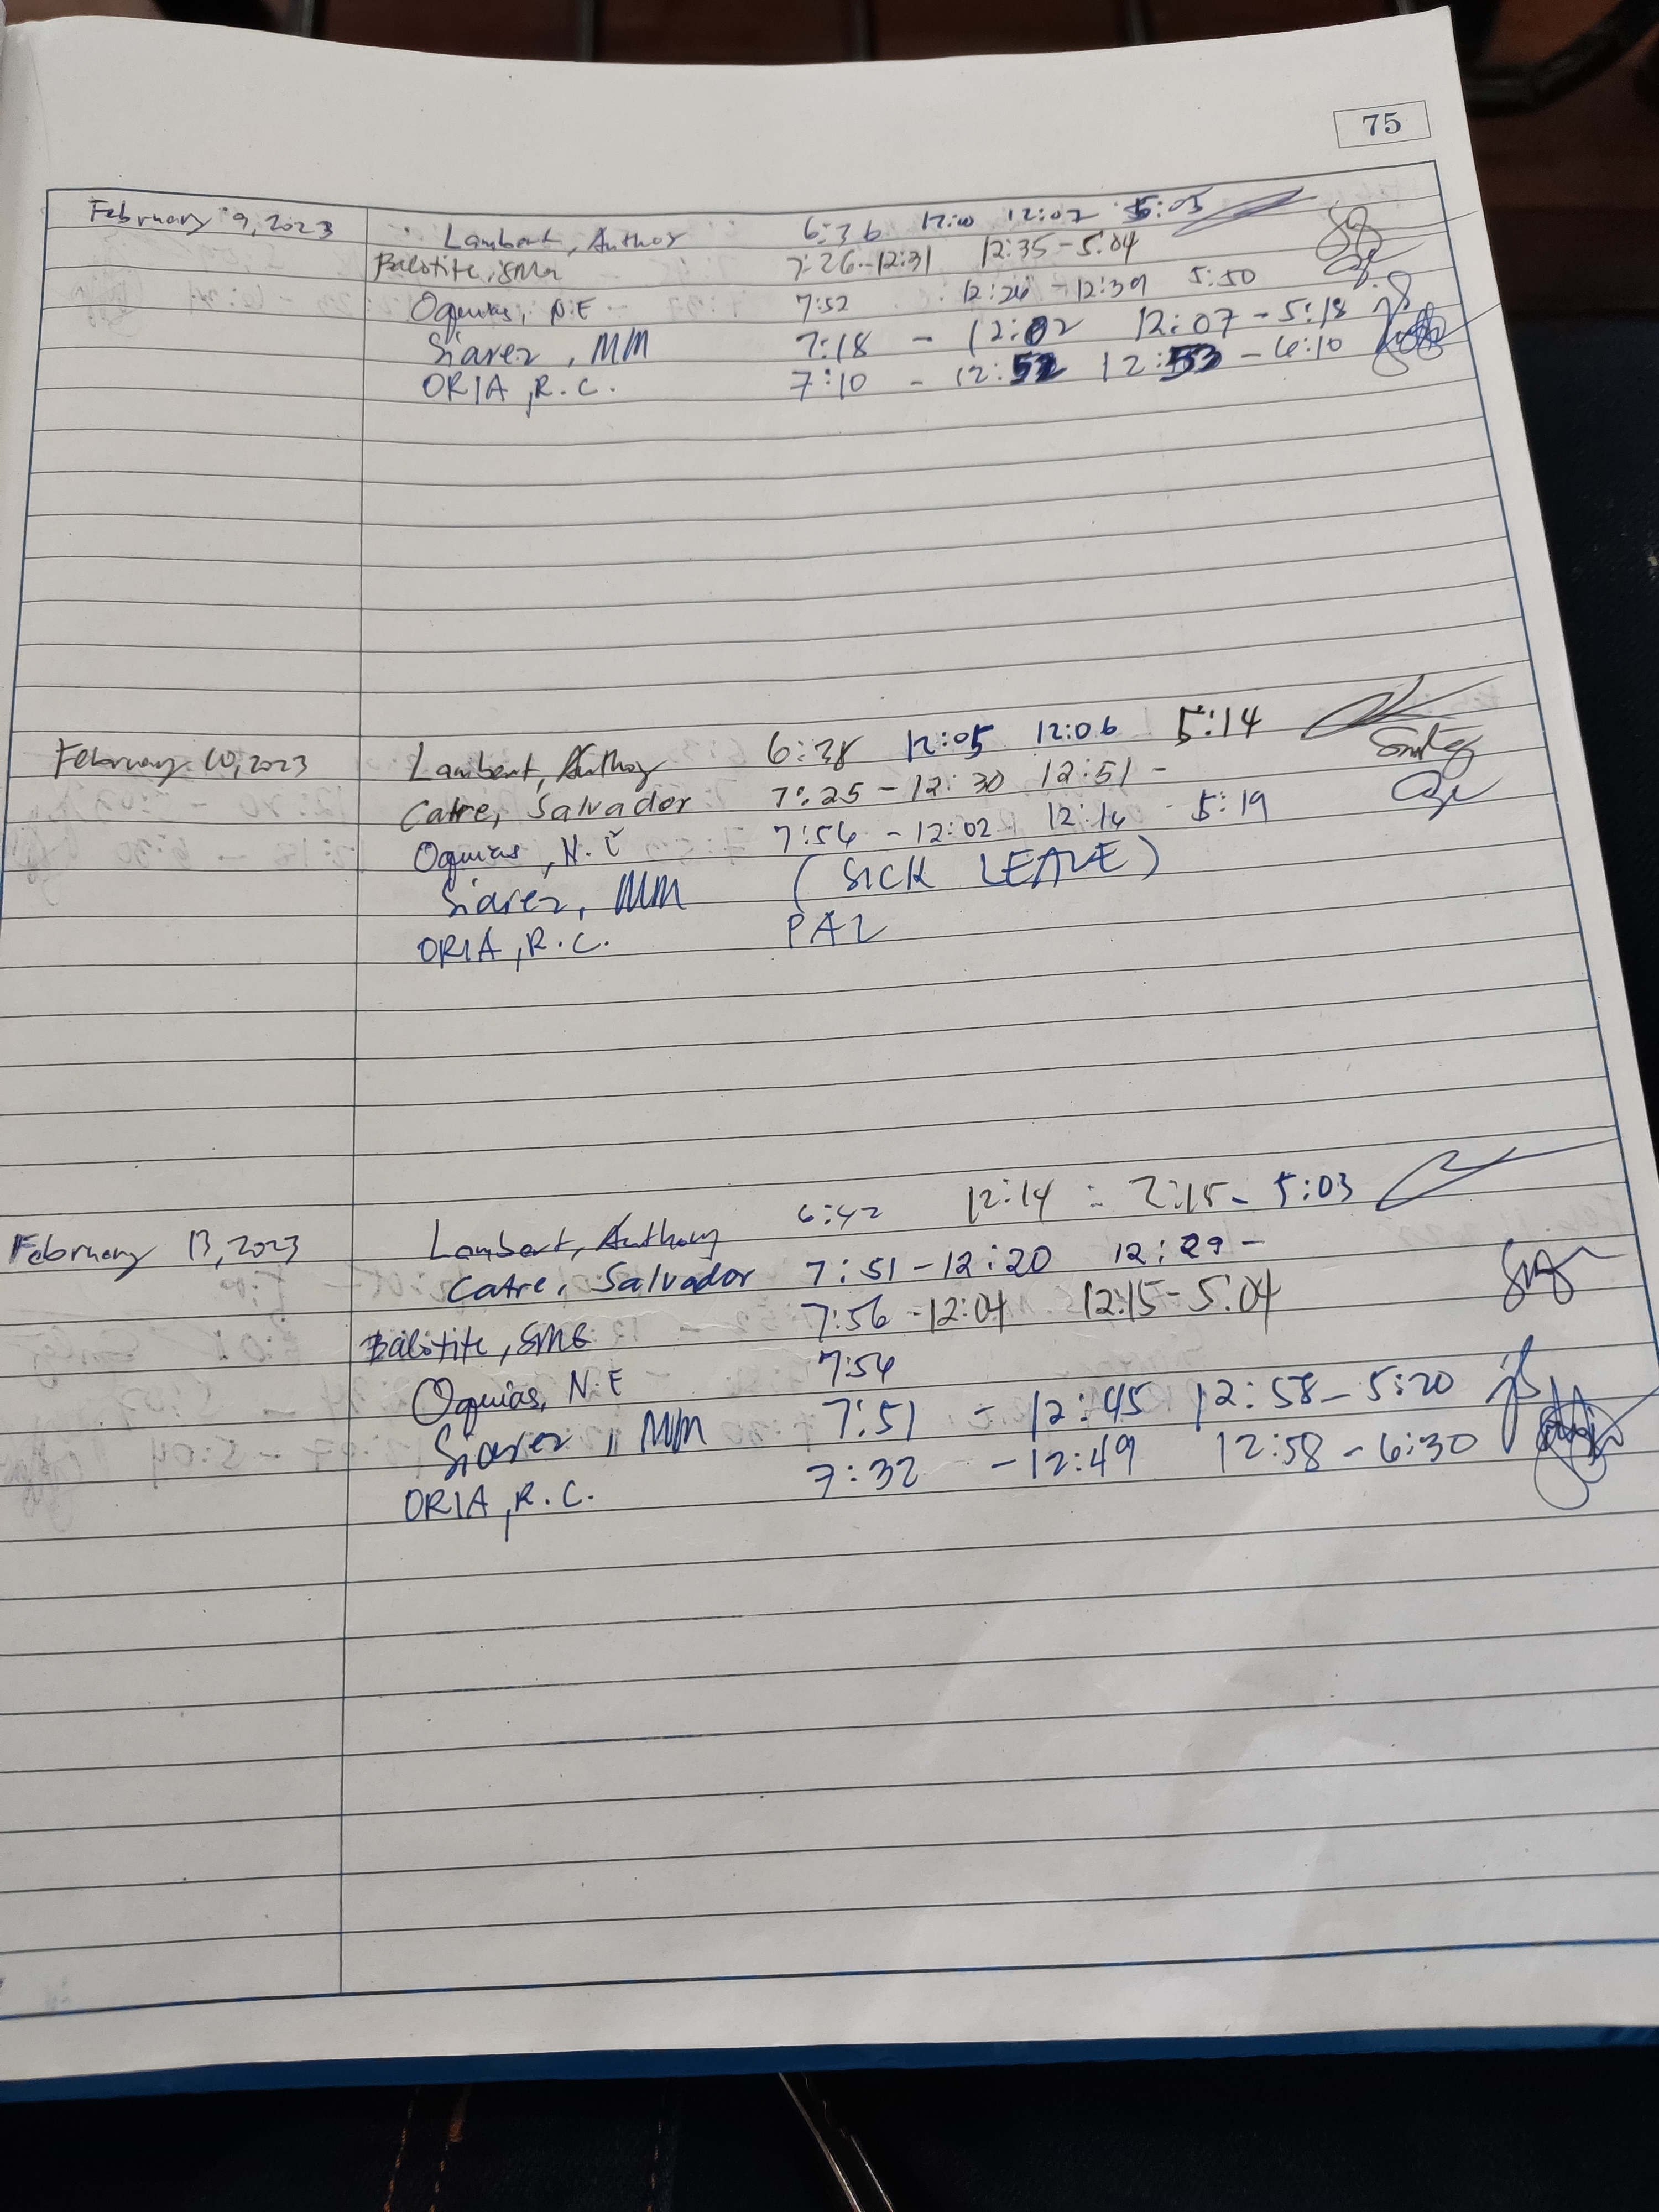 75
February 9, 2023 Lambert, Anthor 6:36 12:00 12:02 5:05
Balotite, SMG 7:26-12:31 12:35-5:04
Oquias, N.E 7:52 12:26 - 12:39 5:50
Siarez, MM 7:18 - 12:02 12:07-5:18
ORIA, R.C. 7:10 - 12:52 12:53 - 6:10
February 10, 2023 Lambert, Anthoy 6:38 12:05 12:06 5:14
Catre, Salvador 7:25 - 12:30 12:51 -
Oquias, N.E 7:56 - 12:02 12:14 5:19
Siarez, MM (SICK LEAVE)
ORIA, R.C. PAL
February 13, 2023 Lambert, Anthony 6:42 12:14 - 2:15 - 5:03
Catre, Salvador 7:51-12:20 12:29-
Balotite, SMG 7:56 -12:04 12:15-5:04
Oquias, N.E 7:54
Siarez, MM 7:51 - 12:45 12:58-5:20
ORIA, R.C. 7:32 - 12:49 12:58 - 6:30